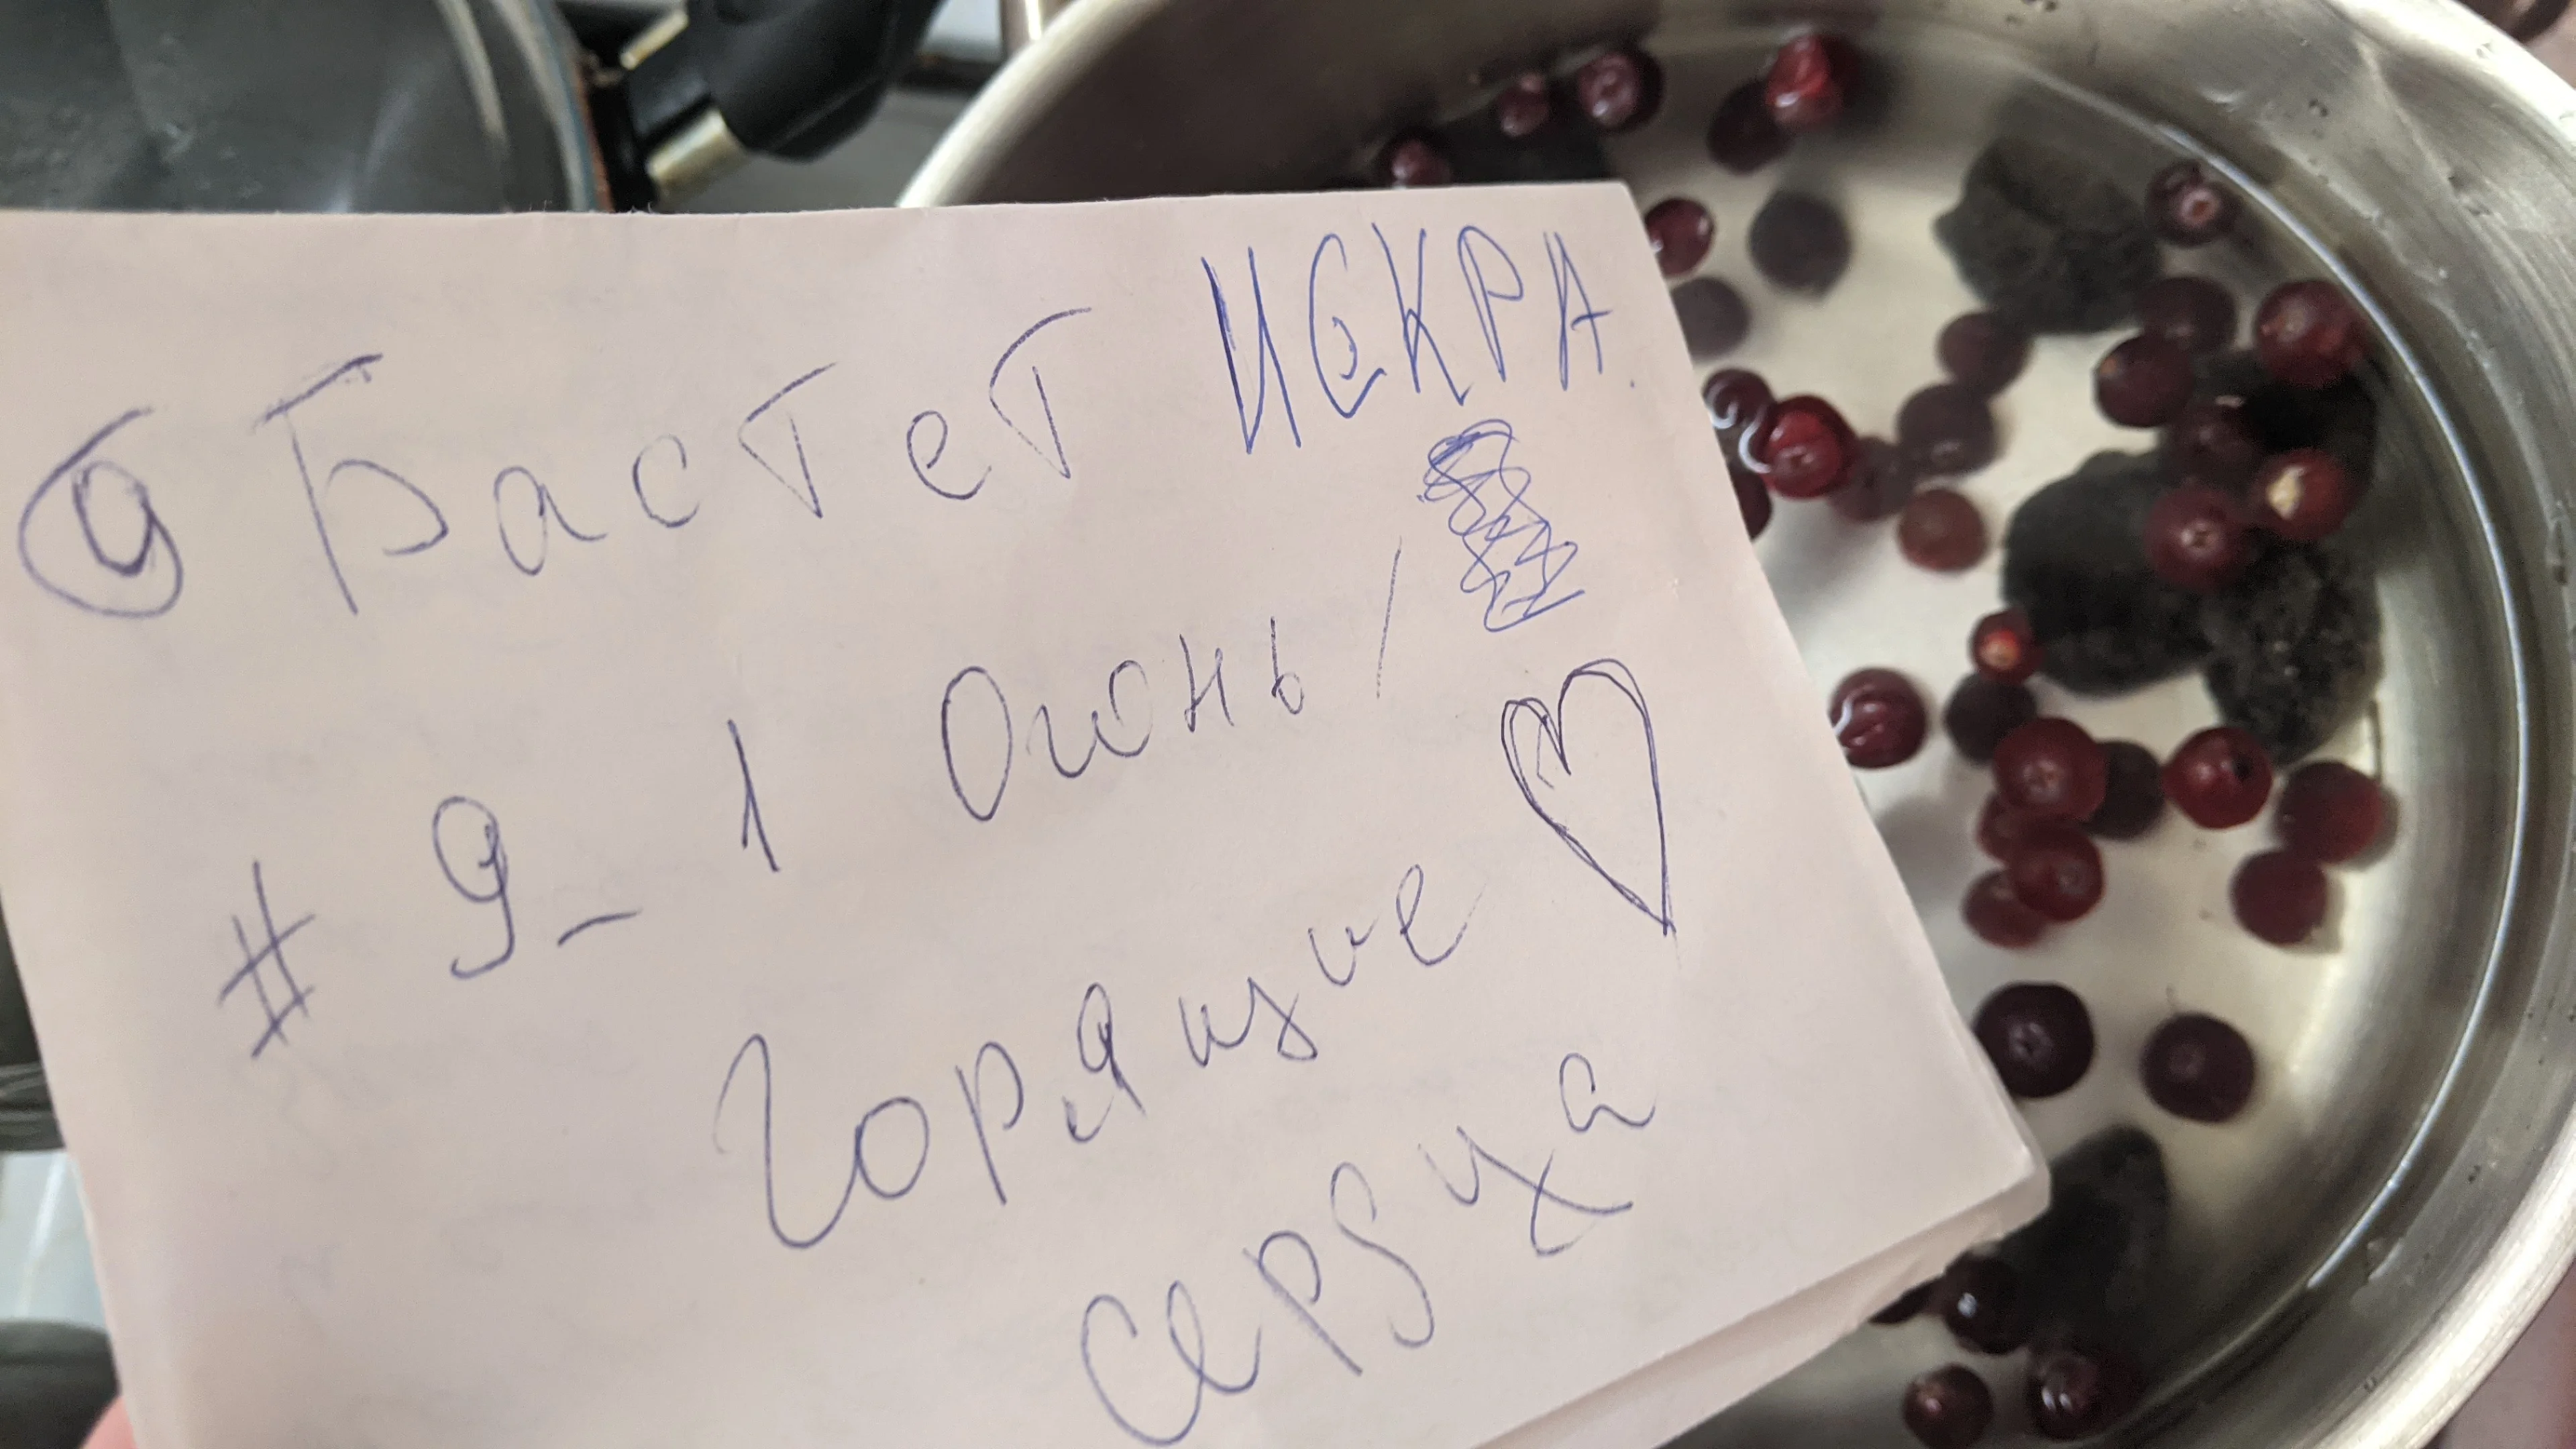 @ Бастет ИСКРА.
# 9_1 Огонь /
Горящие
сердца